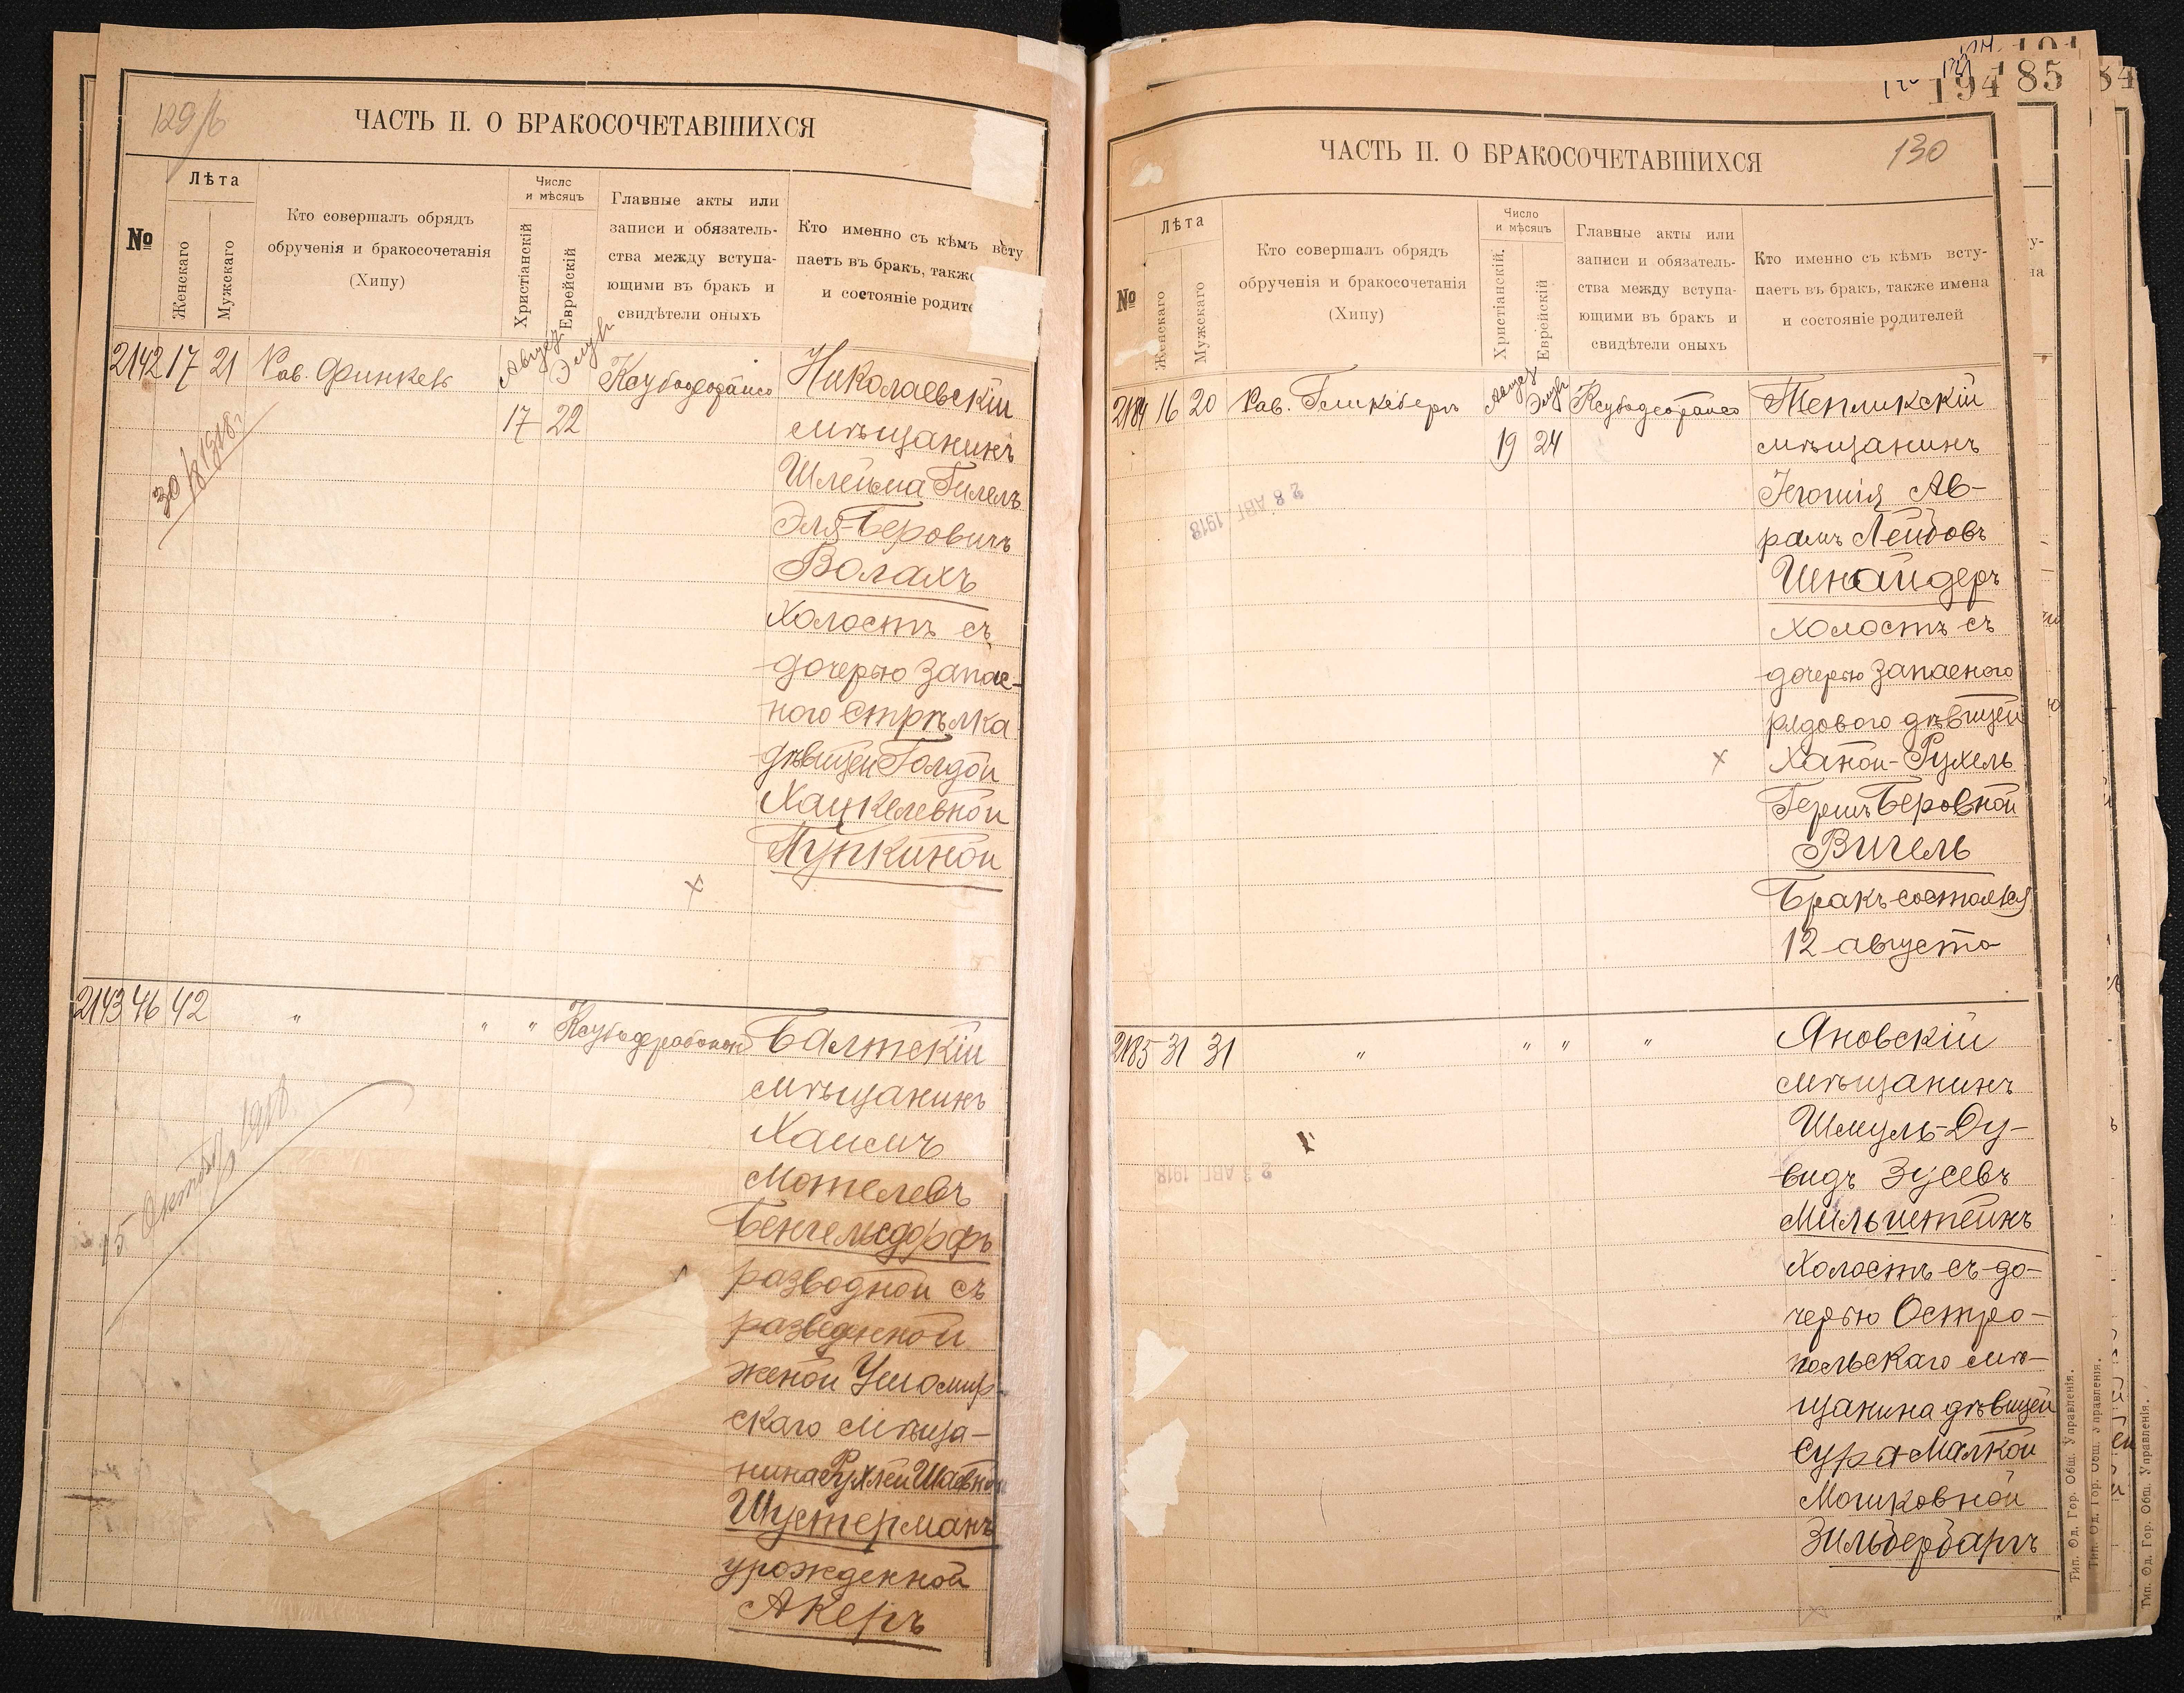 129/б
ЧАСТЬ II. О БРАКОСОЧЕТАВШИХСЯ
№
Лѣта
Женскаго
Мужскаго
Кто совершалъ обрядъ
обрученія и бракосочетанія
(Хипу)
Число
и мѣсяцъ
Христіанскій
Еврейскій
Главные акты или
записи и обязатель-
ства между вступа-
ющими въ бракъ и
свидѣтели оныхъ
Кто именно съ кѣмъ всту
паетъ въ бракъ, также
и состояніе родите
2142 17 21 Рав.
Август Элулъ
17 22
30/8 1918 г
Николаевскій
мѣщанинъ
Шлейма Гилелъ
Эля-Беровичъ
Волахъ
холостъ съ
дочерью запас-
ного стрѣлка
дѣвицей Голдой
Хацкелевной
Пупкиной
х
2143 46 42 " " "
Балтскій
мѣщанинъ
Хаимъ
Мотелевъ
Бенгельсдорфъ
разводной съ
разведенной
женой Ушомир-
скаго мѣща-
нина Рухлей
Шустерманъ
урожденной
Акеръ
15 Октября 1918
194 85
130
ЧАСТЬ II. О БРАКОСОЧЕТАВШИХСЯ
№
Лѣта
Женскаго
Мужскаго
Кто совершалъ обрядъ
обрученія и бракосочетанія
(Хипу)
Число
и мѣсяцъ
Христіанскій.
Еврейскій
Главные акты или
записи и обязатель-
ства между вступа-
ющими въ бракъ и
свидѣтели оныхъ
Кто именно съ кѣмъ всту-
паетъ въ бракъ, также имена
и состояніе родителей
2184 16 20 Рав.
Август Элулъ
19 24
28 АВГ 1918
Тепликскій
мѣщанинъ
Іегошія Ав-
рамъ Лейбовъ
Шнайдеръ
холостъ съ
дочерью запасного
рядового дѣвицей
х Ханой-Рухель
Гершъ Беровной
Вигель
Бракъ состоялся
12 августа
2185 31 31 " " " "
23 АВГ 1918
Яновскій
мѣщанинъ
Шмуль-Ду-
видъ Зусевъ
Мильштейнъ
холостъ съ до-
черью Остро-
польскаго мѣ-
щанина дѣвицей
Сура-Малкой
Мошковной
Зильбербаргъ
Тип. Од. Гор. Общ. Управленія.
Тип. Од. Гор. Общ. Управленія.
Тип. Од. Гор. Общ. Управленія.